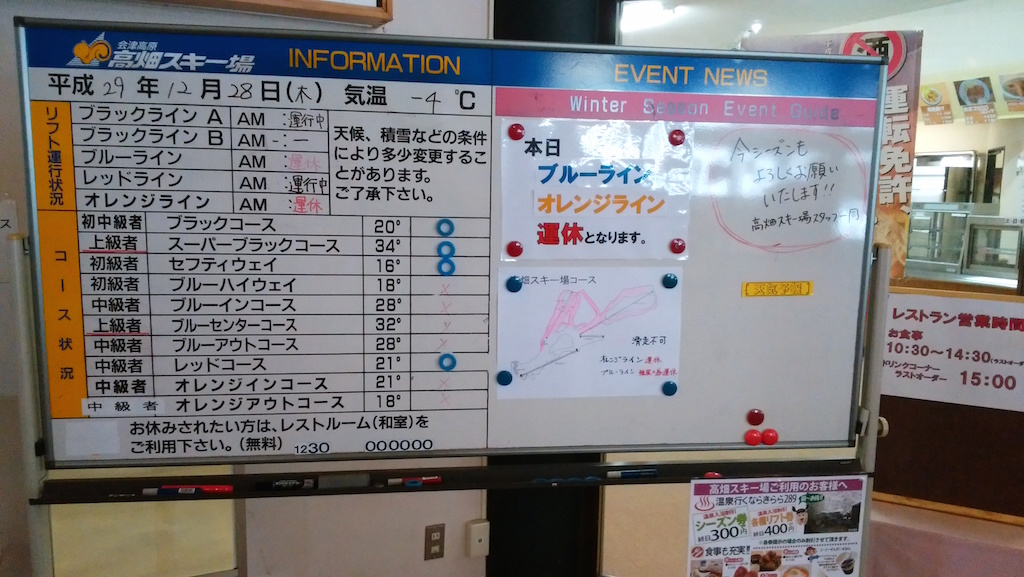 会津高原
高畑スキー場 INFORMATION
平成 29 年 12 月 28 日(木) 気温 -4 ℃
リフト運行状況
ブラックライン A AM :運行中
ブラックライン B AM -:-
ブルーライン AM :運休
レッドライン AM :運行中
オレンジライン AM :運休
天候、積雪などの条件
により多少変更するこ
とがあります。
ご了承下さい。
コース状況
初中級者 ブラックコース 20°
上級者 スーパーブラックコース 34°
初級者 セフティウェイ 16°
初級者 ブルーハイウェイ 18° ×
中級者 ブルーインコース 28° ×
上級者 ブルーセンターコース 32° ×
中級者 ブルーアウトコース 28° ×
中級者 レッドコース 21°
中級者 オレンジインコース 21° ×
中級者 オレンジアウトコース 18° ×
お休みされたい方は、レストルーム(和室)を
ご利用下さい。(無料) 1230 000000
EVENT NEWS
Winter Season Event Guide
本日
ブルーライン
オレンジライン
運休となります。
今シーズンも
よろしくお願い
いたします!!
高畑スキー場スタッフ一同
畑スキー場コース
滑走不可
オレンジライン 運休
ブルーライン
運転免許
レストラン営業時間
お食事
10:30~14:30(ラストオーダー
ドリンクコーナー
ラストオーダー 15:00
高畑スキー場ご利用のお客様へ
温泉行くならきらら289
シーズン券
終日300円
各種リフト券
終日400円
お食事も充実!!
ス